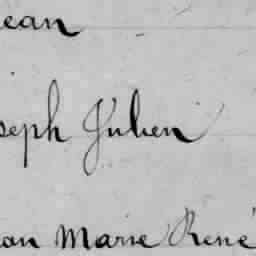 ean
seph Julien
ean Marie René